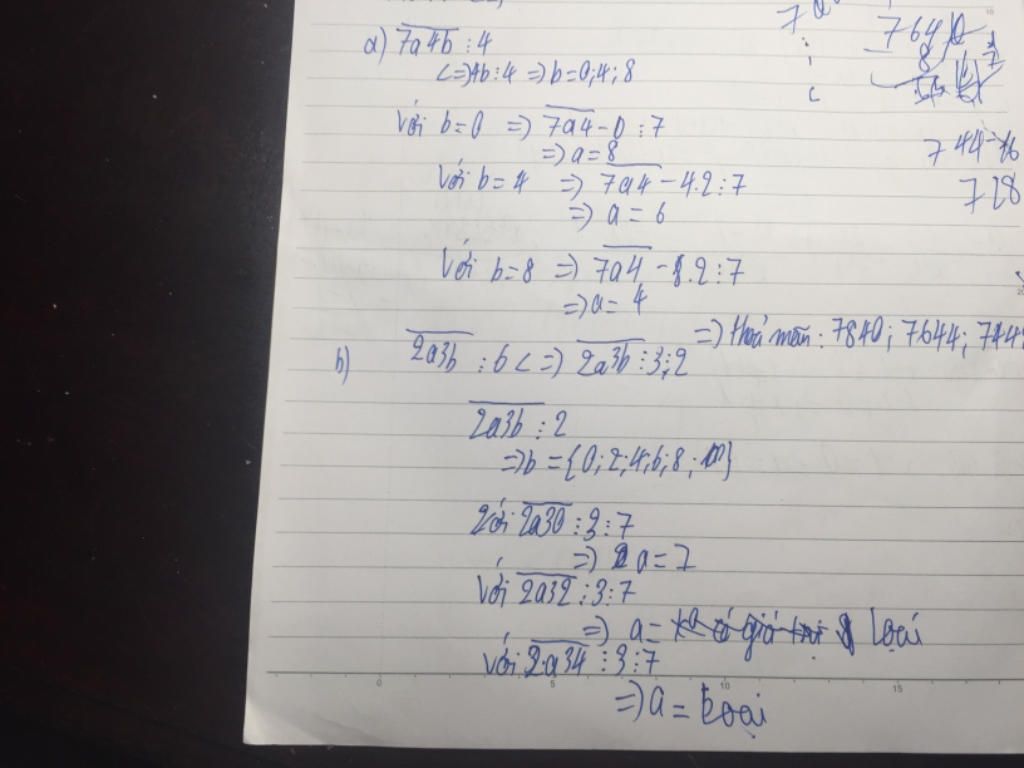 7a4b ⋮ 4
a) 7a4b ⋮ 4
<=> 4b ⋮ 4 => b = 0; 4; 8
với b = 0 => 7a4 - 0 ⋮ 7
=> a = 8
với b = 4 => 7a4 - 4.2 ⋮ 7
=> a = 6
với b = 8 => 7a4 - 8.2 ⋮ 7
=> a = 4
=> thoả mãn: 7840; 7644; 7448
b) 2a3b ⋮ 6 <=> 2a3b ⋮ 3; 2
2a3b ⋮ 2
=> b = {0; 2; 4; 6; 8; }
với 2a30 ⋮ 3 ⋮ 7
=> a = 7
với 2a32 ⋮ 3 ⋮ 7
=> a = loại
với 2a34 ⋮ 3 ⋮ 7
=> a = Loại
764
744 - 16
728
0
5
10
15